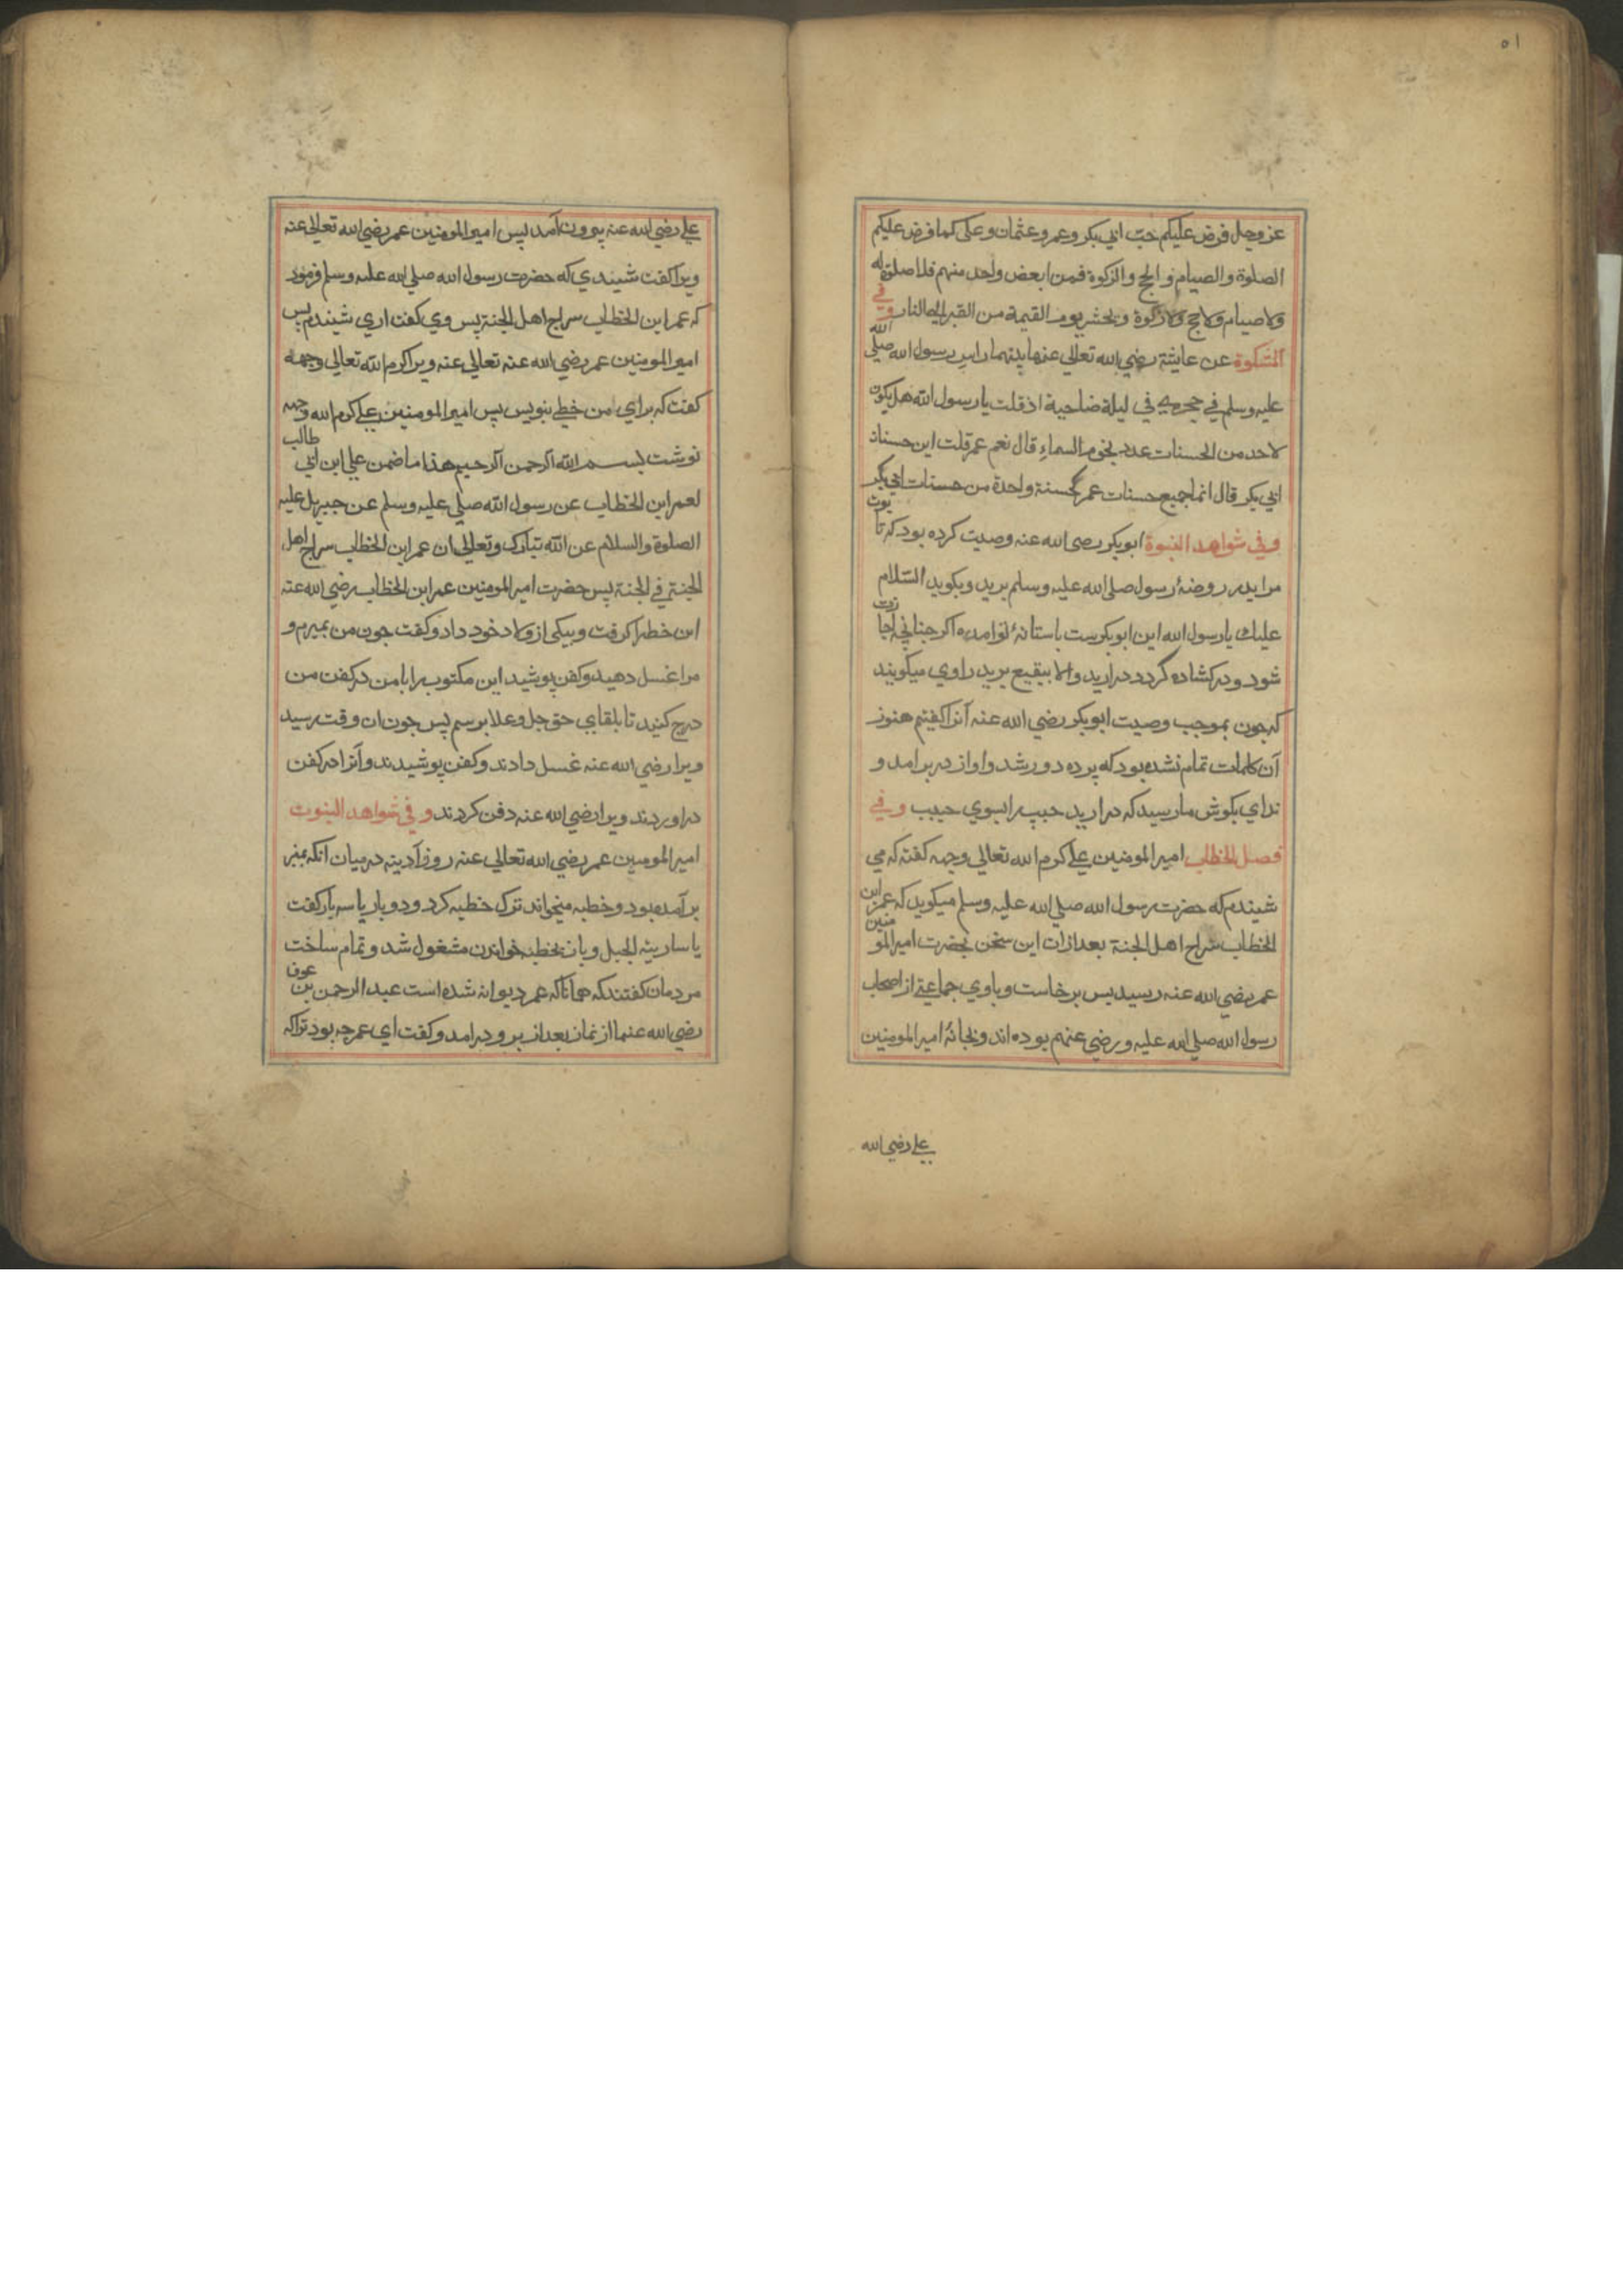 ٥١
عز وجل فرض عليكم حبّ ابي بكر وعمر وعثمان وعلي كما فرض عليكم
الصلوة والصيام والحج والزكوة فمن ابغض واحد منهم فلا صلوة له
ولا صيام ولا حج ولا زكوة ويحشر يوم القيمة من القبر الي النار وفي
المشكوة عن عايشة رضي الله تعالي عنها بينهما راس رسول الله صلي الله
عليه وسلم في حجري في ليلة ضاحية اذ قلت يا رسول الله هل يكون
لاحد من الحسنات عدد نجوم السماء قال نعم عمر قلت اين حسنات
ابي بكر قال انما جميع حسنات عمر كحسنة واحدة من حسنات ابي بكر
وفي شواهد النبوة ابوبكر رضي الله عنه وصيت كرده بود كه تابوت
مرا بدر روضهٔ رسول صلي الله عليه وسلم بريد وبكويد السّلام
عليك يا رسول الله اين ابوبكرست باستانهٔ تو امده اكر چنانچه اجازت
شود ودر كشاده كردد در اريد والا ببقيع بريد راوي ميكويند
كه چون بموجب وصيت ابوبكر رضي الله عنه آنرا كفتيم هنوز
آن كلمات تمام نشده بود كه پرده دور شد واواز در برامد و
نداي بكوش ما رسيد كه در اريد حبيب را بسوي حبيب وفي
فصل الخطاب امير المومنين علي كرم الله تعالي وجهه كفته كه مي
شيندم كه حضرت رسول الله صلي الله عليه وسلم ميكويد كه عمر ابن
الخطاب سراج اهل الجنة بعد ازان اين سخن بحضرت امير المومنين
عمر رضي الله عنه رسيد پس برخاست وباوي جماعتي از اصحاب
رسول الله صلي الله عليه ورضي عنهم بوده اند وبخانهٔ امير المومنين
علي رضي الله
علي رضي الله عنه بيرون آمد پس امير المومنين عمر رضي الله تعالي عنه
ويرا كفت شيندي كه حضرت رسول الله صلي الله عليه وسلم فرمود
كه عمر ابن الخطاب سراج اهل الجنة پس وي كفت اري شيندم پس
امير المومنين عمر رضي الله عنه تعالي عنه ويرا كرم الله تعالي وجهه
كفت كه براي من خطي بنويس پس امير المومنين علي كرم الله وجهه
نوشت بسم الله الرحمن الرحيم هذا ما ضمن علي ابن ابي طالب
لعمر ابن الخطاب عن رسول الله صلي عليه وسلم عن جبريل عليه
الصلوة والسلام عن الله تبارك وتعالي ان عمر ابن الخطاب سراج اهل
الجنة في الجنة پس حضرت امير المومنين عمر ابن الخطاب رضي الله عنه
اين خط را كرفت وبيكي از ولاد خود داد وكفت چون من بميرم و
مرا غسل دهيد وكفن پوشيد اين مكتوب را با من در كفن من
درج كنيد تا بلقاي حق جل وعلا برسم پس چون ان وقت رسيد
ويرا رضي الله عنه غسل دادند وكفن پوشيدند وآنرا در كفن
در اوردند ويرا رضي الله عنه دفن كردند وفي شواهد النبوت
امير المومنين عمر رضي الله تعالي عنه روز آدينه در ميان انكه بمنبر
بر آمده بود وخطبه ميخواند ترك خطبه كرد ودوبار يا سه بار كفت
يا سارية الجبل وباز بخطبه خواندن مشغول شد وتمام ساخت
مردمان كفتند كه همانا كه عمر ديوانه شده است عبد الرحمن بن عوف
رضي الله عنهما از نماز بعد از برو درامد وكفت اي عمر چه بود تراكه